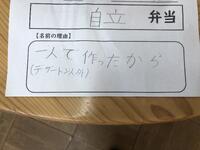 自立 弁当
【名前の理由】
一人で作ったから
(デザート以外)